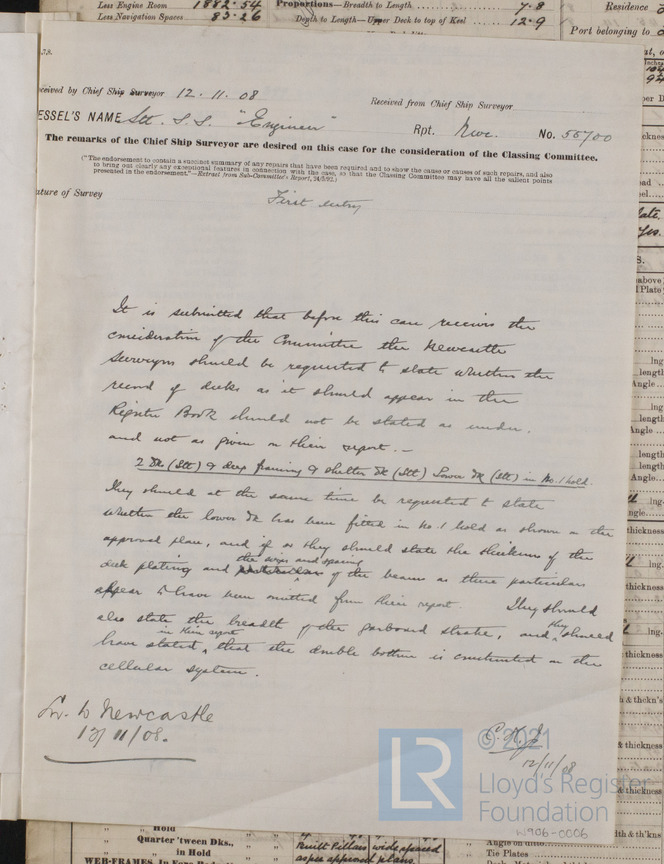 Less Engine Room 1882.54
Less Navigation Spaces 83.26
Proportions—Breadth to Length 7.8
Depth to Length—Upper Deck to top of Keel 12.9
Residence
Port belonging to
Received by Chief Ship Surveyor 12.11.08
Received from Chief Ship Surveyor
ESSEL'S NAME Stl. S.S. "Engineer"
Rpt. Nwc. No. 55700
The remarks of the Chief Ship Surveyor are desired on this case for the consideration of the Classing Committee.
("The endorsement to contain a succinct summary of any repairs that have been required and to show the cause or causes of such repairs, and also
to bring out clearly any exceptional features in connection with the case, so that the Classing Committee may have all the salient points
presented in the endorsement."—Extract from Sub-Committee's Report, 24/5/92.)
ature of Survey First entry
It is submitted that before this case receives the
consideration of the Committee the Newcastle
Surveyors should be requested to state whether the
record of decks as it should appear in the
Register Book should not be stated as under.
and not as given on their report.—
2 Dks (Stl) & deep framing & shelter dk (Stl) Lower dk (Stl) in No.1 hold.
They should at the same time be requested to state
whether the lower dk has been fitted in No.1 hold as shown on the
approved plan, and if so they should state the thickness of the
deck plating and the sizes and spacing of the beams as these particulars
appear to have been omitted from their report. They should
also state the breadth of the garboard strake, and they should
have stated in their report that the double bottom is constructed on the
cellular system.
Newcastle
13/11/08.
12/11/08
© 2021
LR
Lloyd's Register
Foundation
W906-0006
Hold
Quarter 'tween Dks.,
in Hold
Built Pillars wide spaced
as per approved plans.
Angle on
Tie Plates